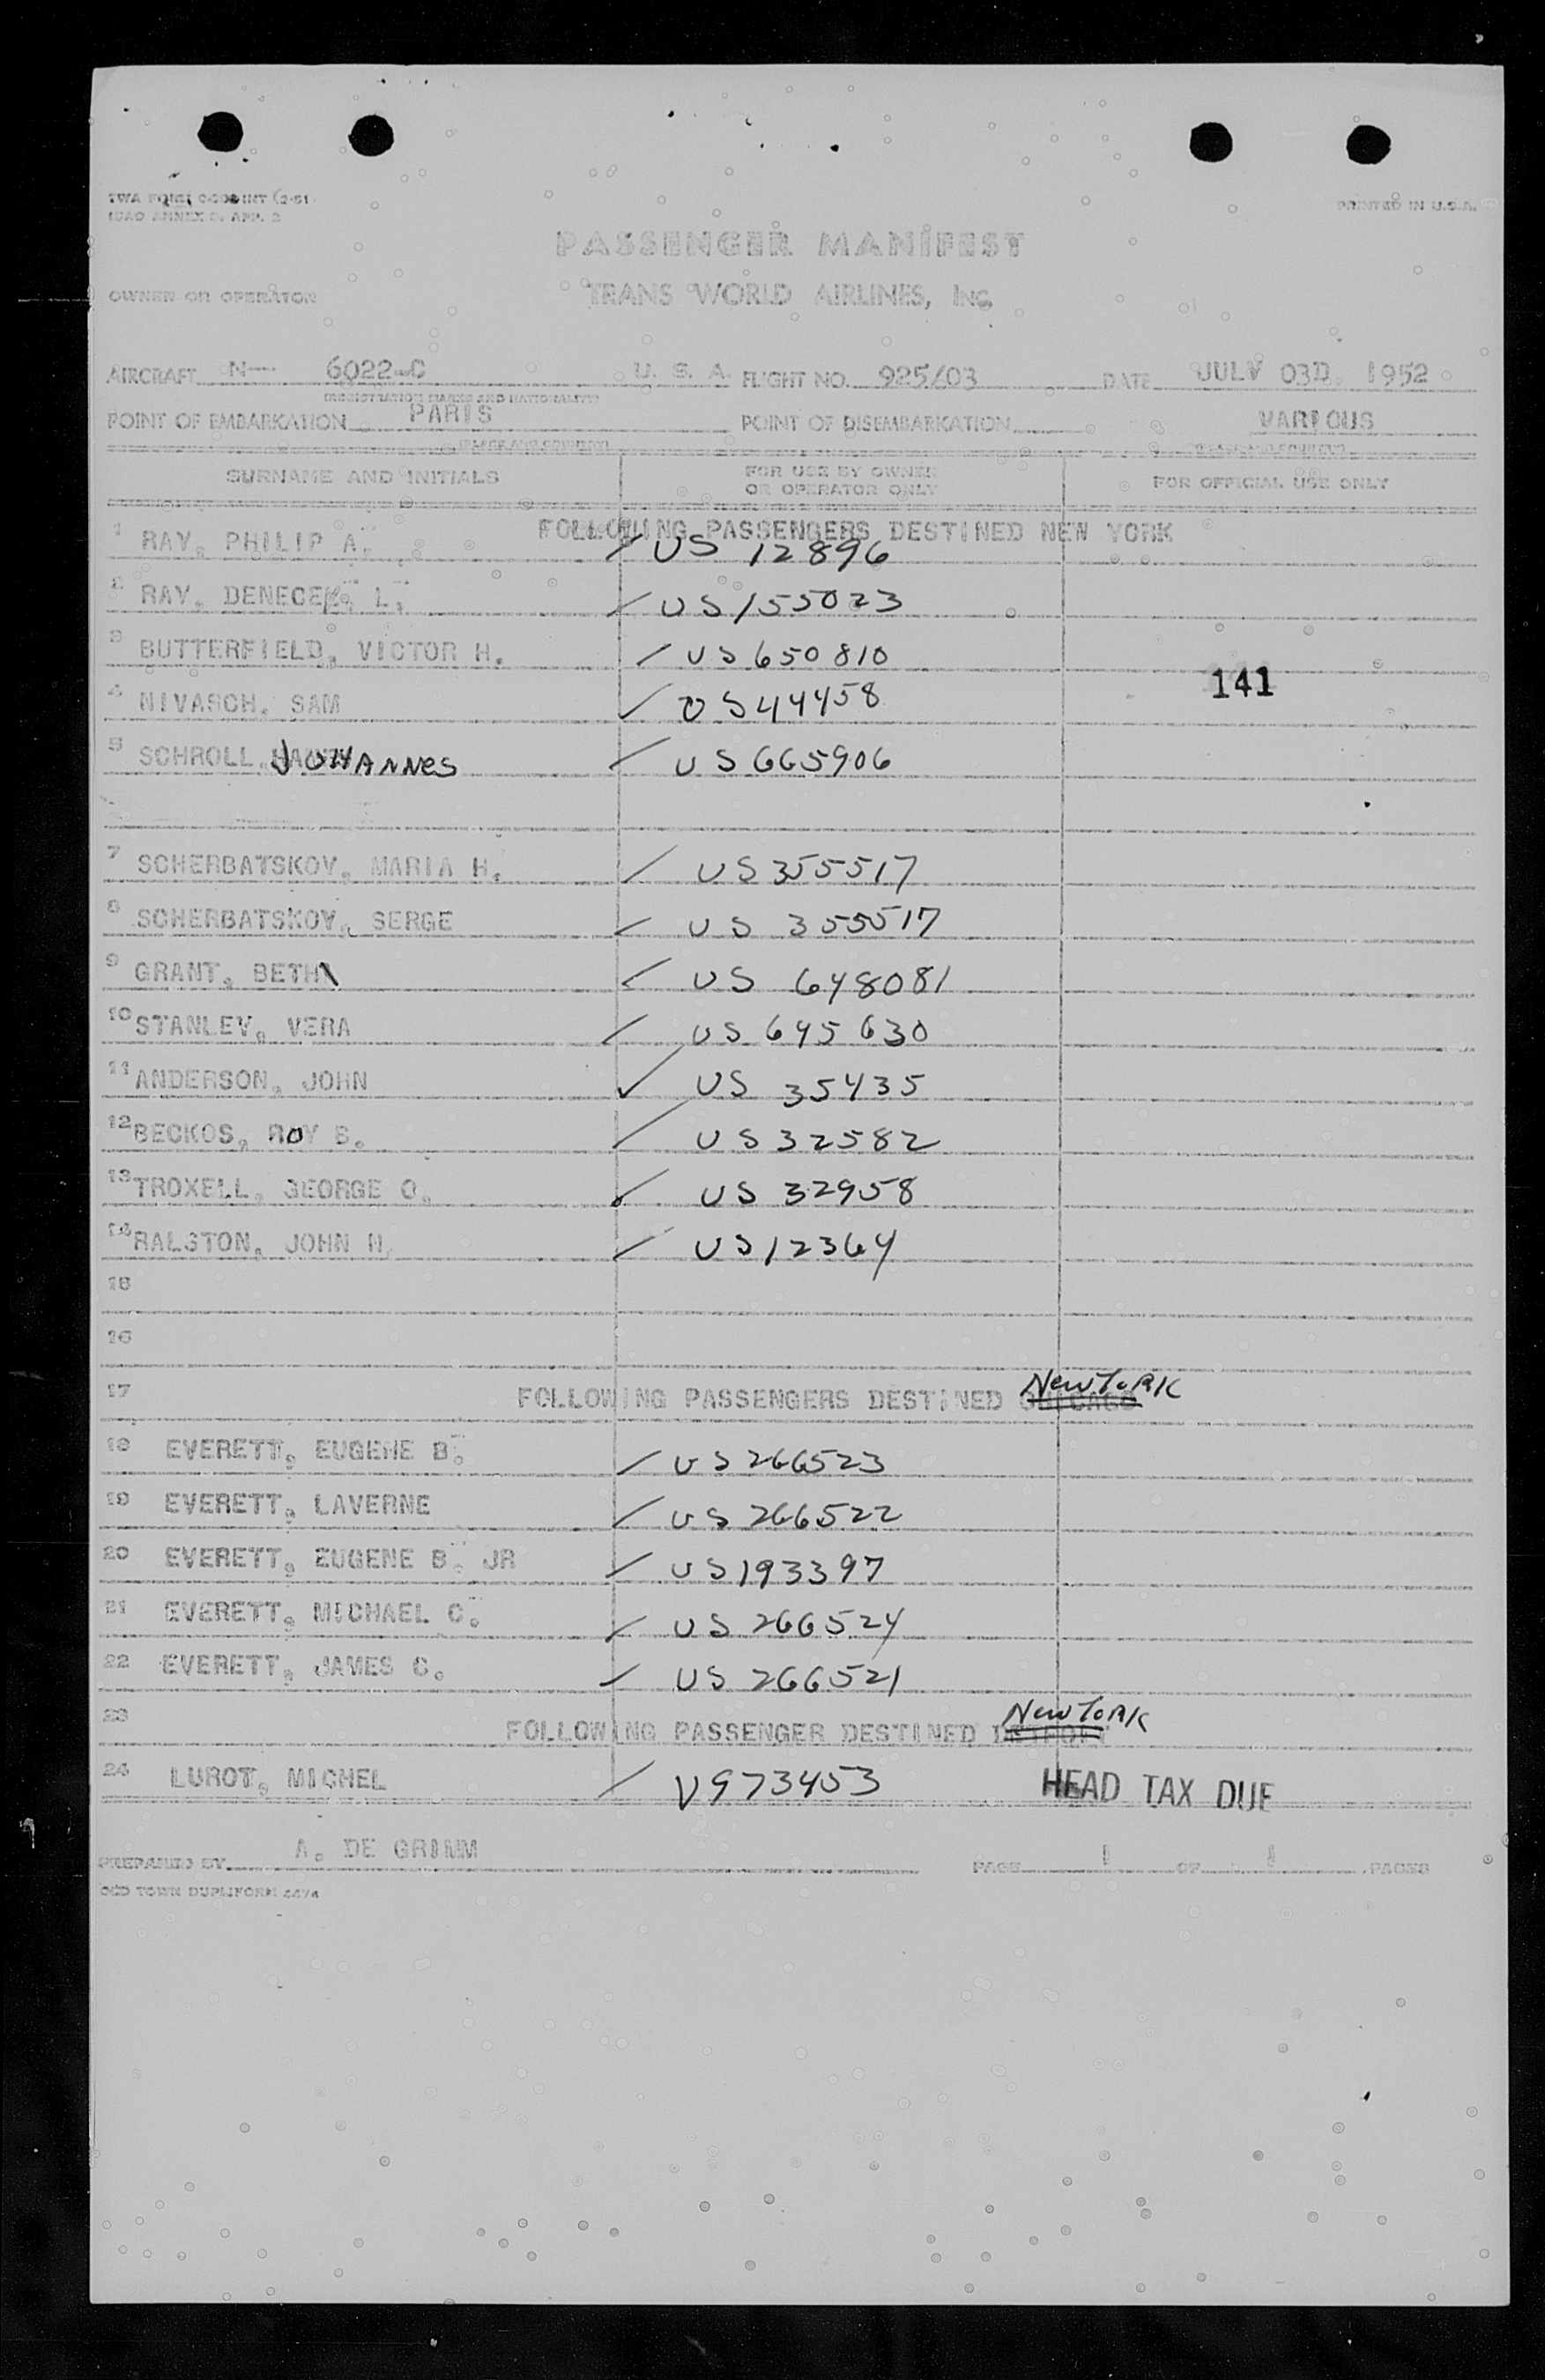 TWA FORM INT (2-51)
ICAO ANNEX 9, APP. 2
PRINTED IN U.S.A.
PASSENGER MANIFEST
OWNER OR OPERATOR TRANS WORLD AIRLINES, INC.
AIRCRAFT N— 6022-C U. S. A. FLIGHT NO. 925/03 DATE JULY 03D, 1952
(REGISTRATION MARKS AND NATIONALITY)
POINT OF EMBARKATION PARIS POINT OF DISEMBARKATION VARIOUS
(PLACE AND COUNTRY) (PLACE AND COUNTRY)
SURNAME AND INITIALS FOR USE BY OWNER OR OPERATOR ONLY FOR OFFICIAL USE ONLY
FOLLOWING PASSENGERS DESTINED NEW YORK
1 RAY, PHILIP A. / US 12896
2 RAY, L. / US 155023
3 BUTTERFIELD, VICTOR H. / US 650810
141
4 NIVASCH, SAM / US 44458
5 SCHROLL, JOHANNES / US 665906
7 SCHERBATSKOY, MARIA H. / US 355517
8 SCHERBATSKOY, SERGE / US 355517
9 GRANT, BETH / US 648081
10 STANLEY, VERA / US 645630
11 ANDERSON, JOHN ✓ US 35435
12 BECKOS, ROY B. / US 32582
13 TROXELL, GEORGE O. ✓ US 32958
14 RALSTON, JOHN H. / US 12364
15
16
17 FOLLOWING PASSENGERS DESTINED CHICAGO New YORK
18 EVERETT, EUGENE B. / US 266523
19 EVERETT, LAVERNE / US 266522
20 EVERETT, EUGENE B. JR / US 193397
21 EVERETT, MICHAEL C. / US 266524
22 EVERETT, JAMES C. / US 266521
23 FOLLOWING PASSENGER DESTINED DETROIT New YORK
24 LUROT, MICHEL / V973453 HEAD TAX DUE
PREPARED BY A. DE GRIMM PAGE 1 OF 1 PAGES
OLD TOWN DUPLIFORM